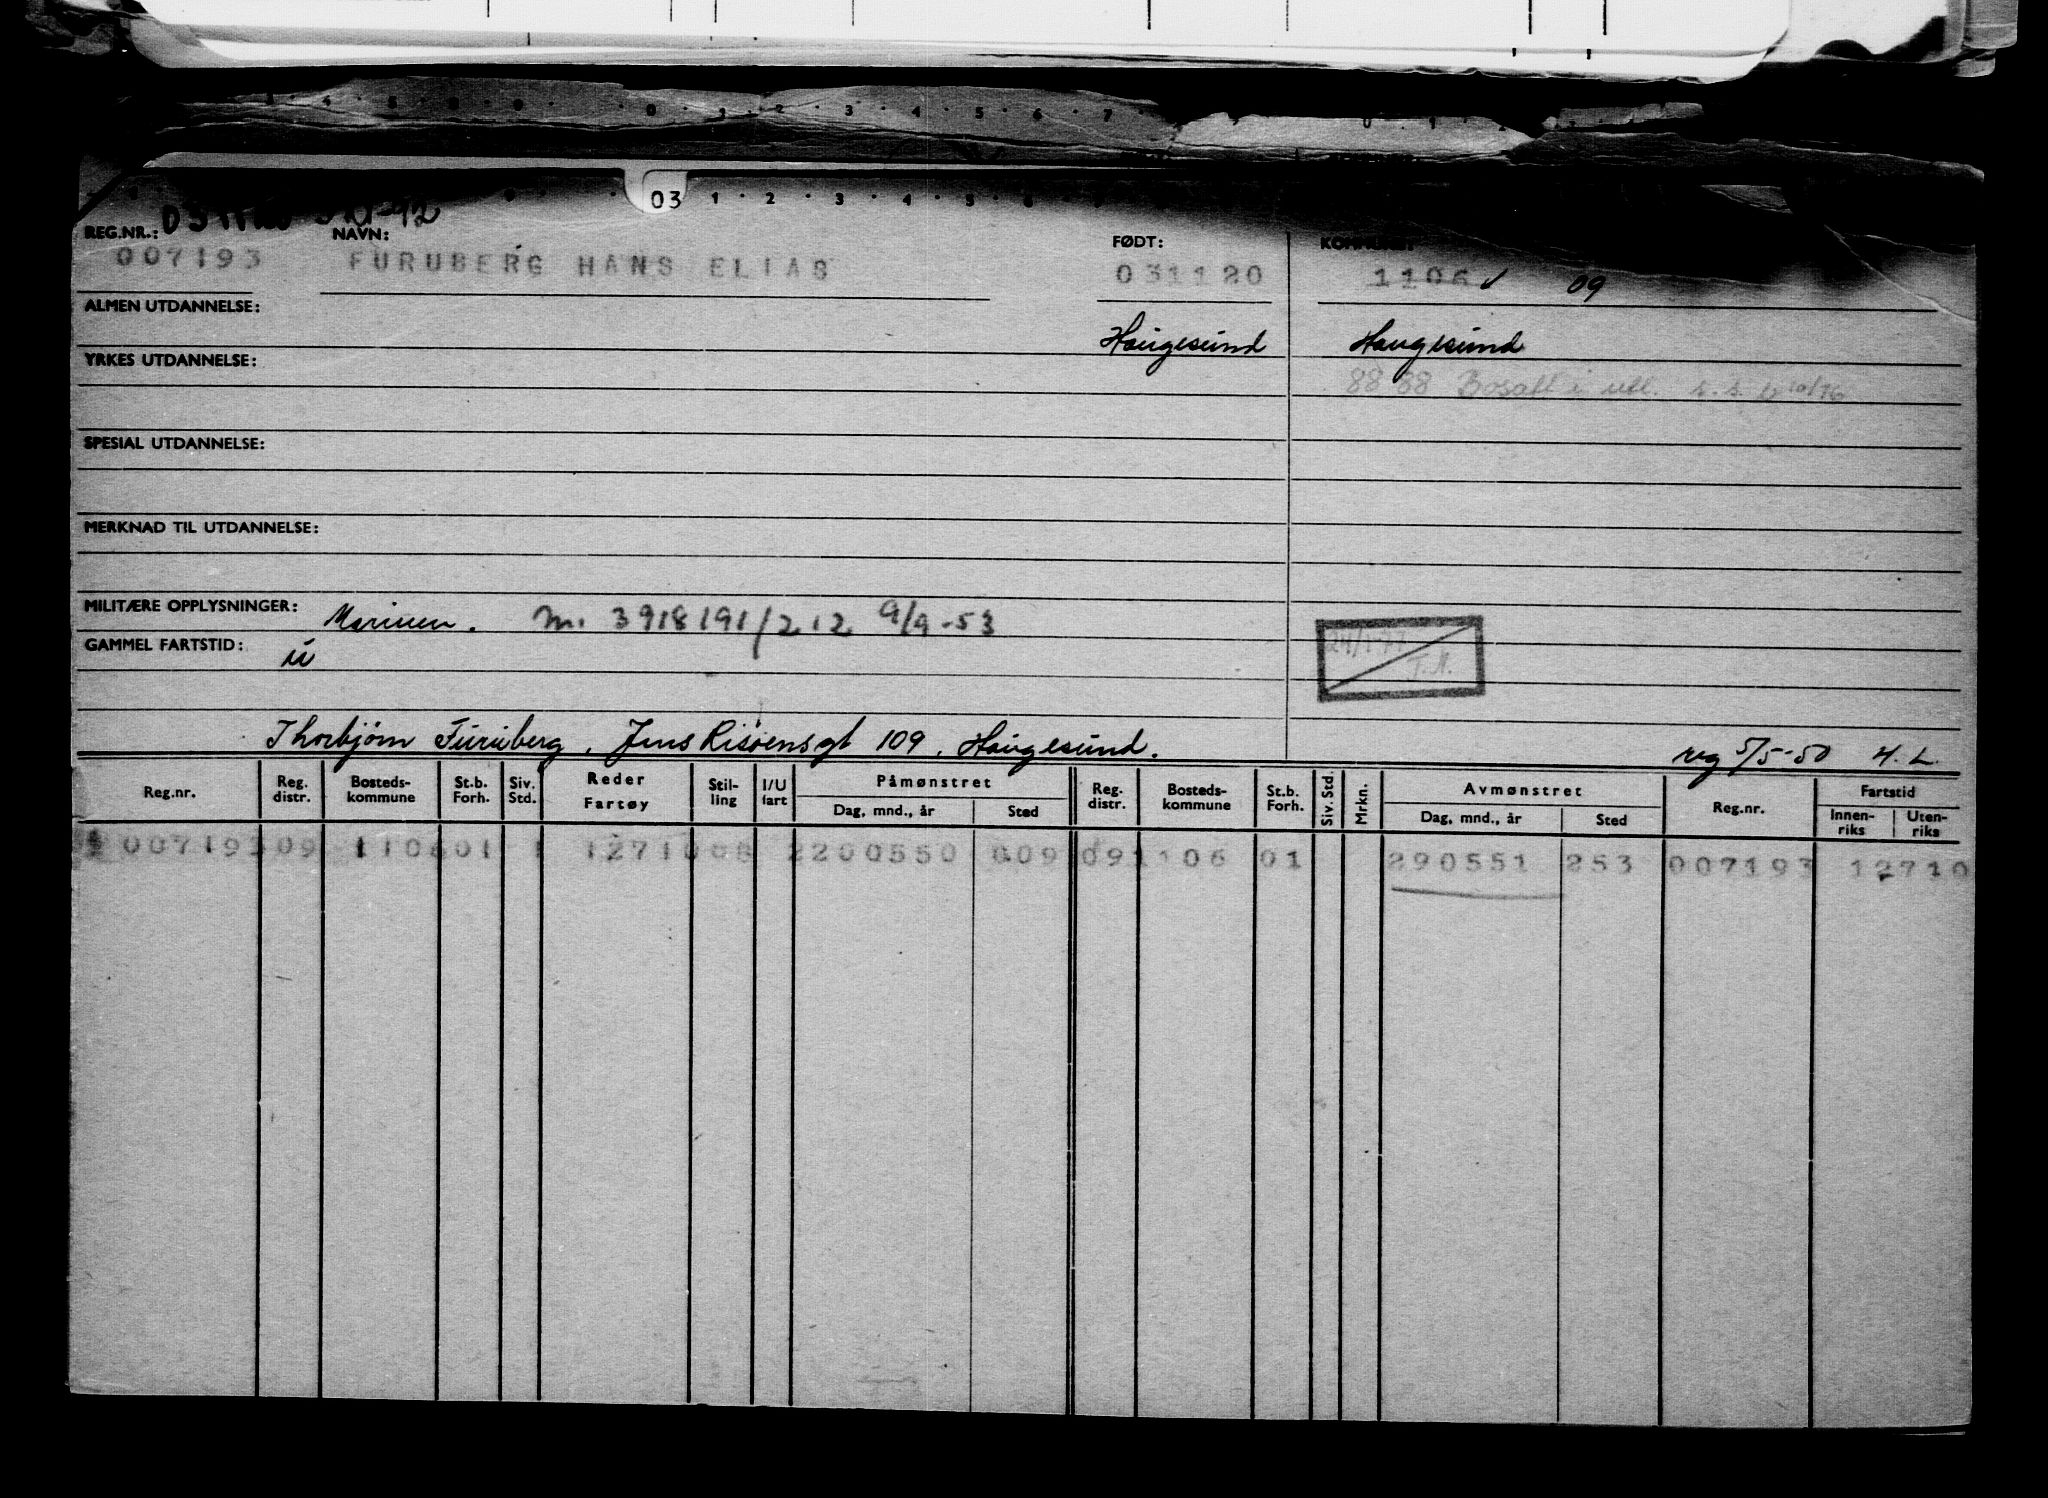 4 · 5 · 8 · 9 · 0 · 1 · 2 · 3 · 4 · 5 · 6 · 7 · 0 · 1
03 1 · 2 · 3 · 4 · 5 · 6
REG.NR.: NAVN: FØDT:
007193 FURUBERG HANS ELIAS 031120 1106 ✓ 09
ALMEN UTDANNELSE:
Haugesund Haugesund
YRKES UTDANNELSE:
88 88 Bosatt i utl.
SPESIAL UTDANNELSE:
MERKNAD TIL UTDANNELSE:
MILITÆRE OPPLYSNINGER: Marinen. m. 3918191/212 9/9-53
GAMMEL FARTSTID: U
24/1-77
Thorbjørn Furuberg, Jens Risøensgt 109, Haugesund.
reg 5/5-50 H.L.
Reg.nr. Reg. distr. Bosteds-kommune St.b. Forh. Siv. Std. Reder Fartøy Stil-ling I/U fart Påmønstret Dag, mnd., år Sted Reg. distr. Bosteds-kommune St.b. Forh. Siv. Std. Mrkn. Avmønstret Dag, mnd., år Sted Reg.nr. Fartstid Innen-riks Uten-riks
007193 09 1106 01 1 12710 2 200550 009 09 1106 01 290551 253 007193 12710